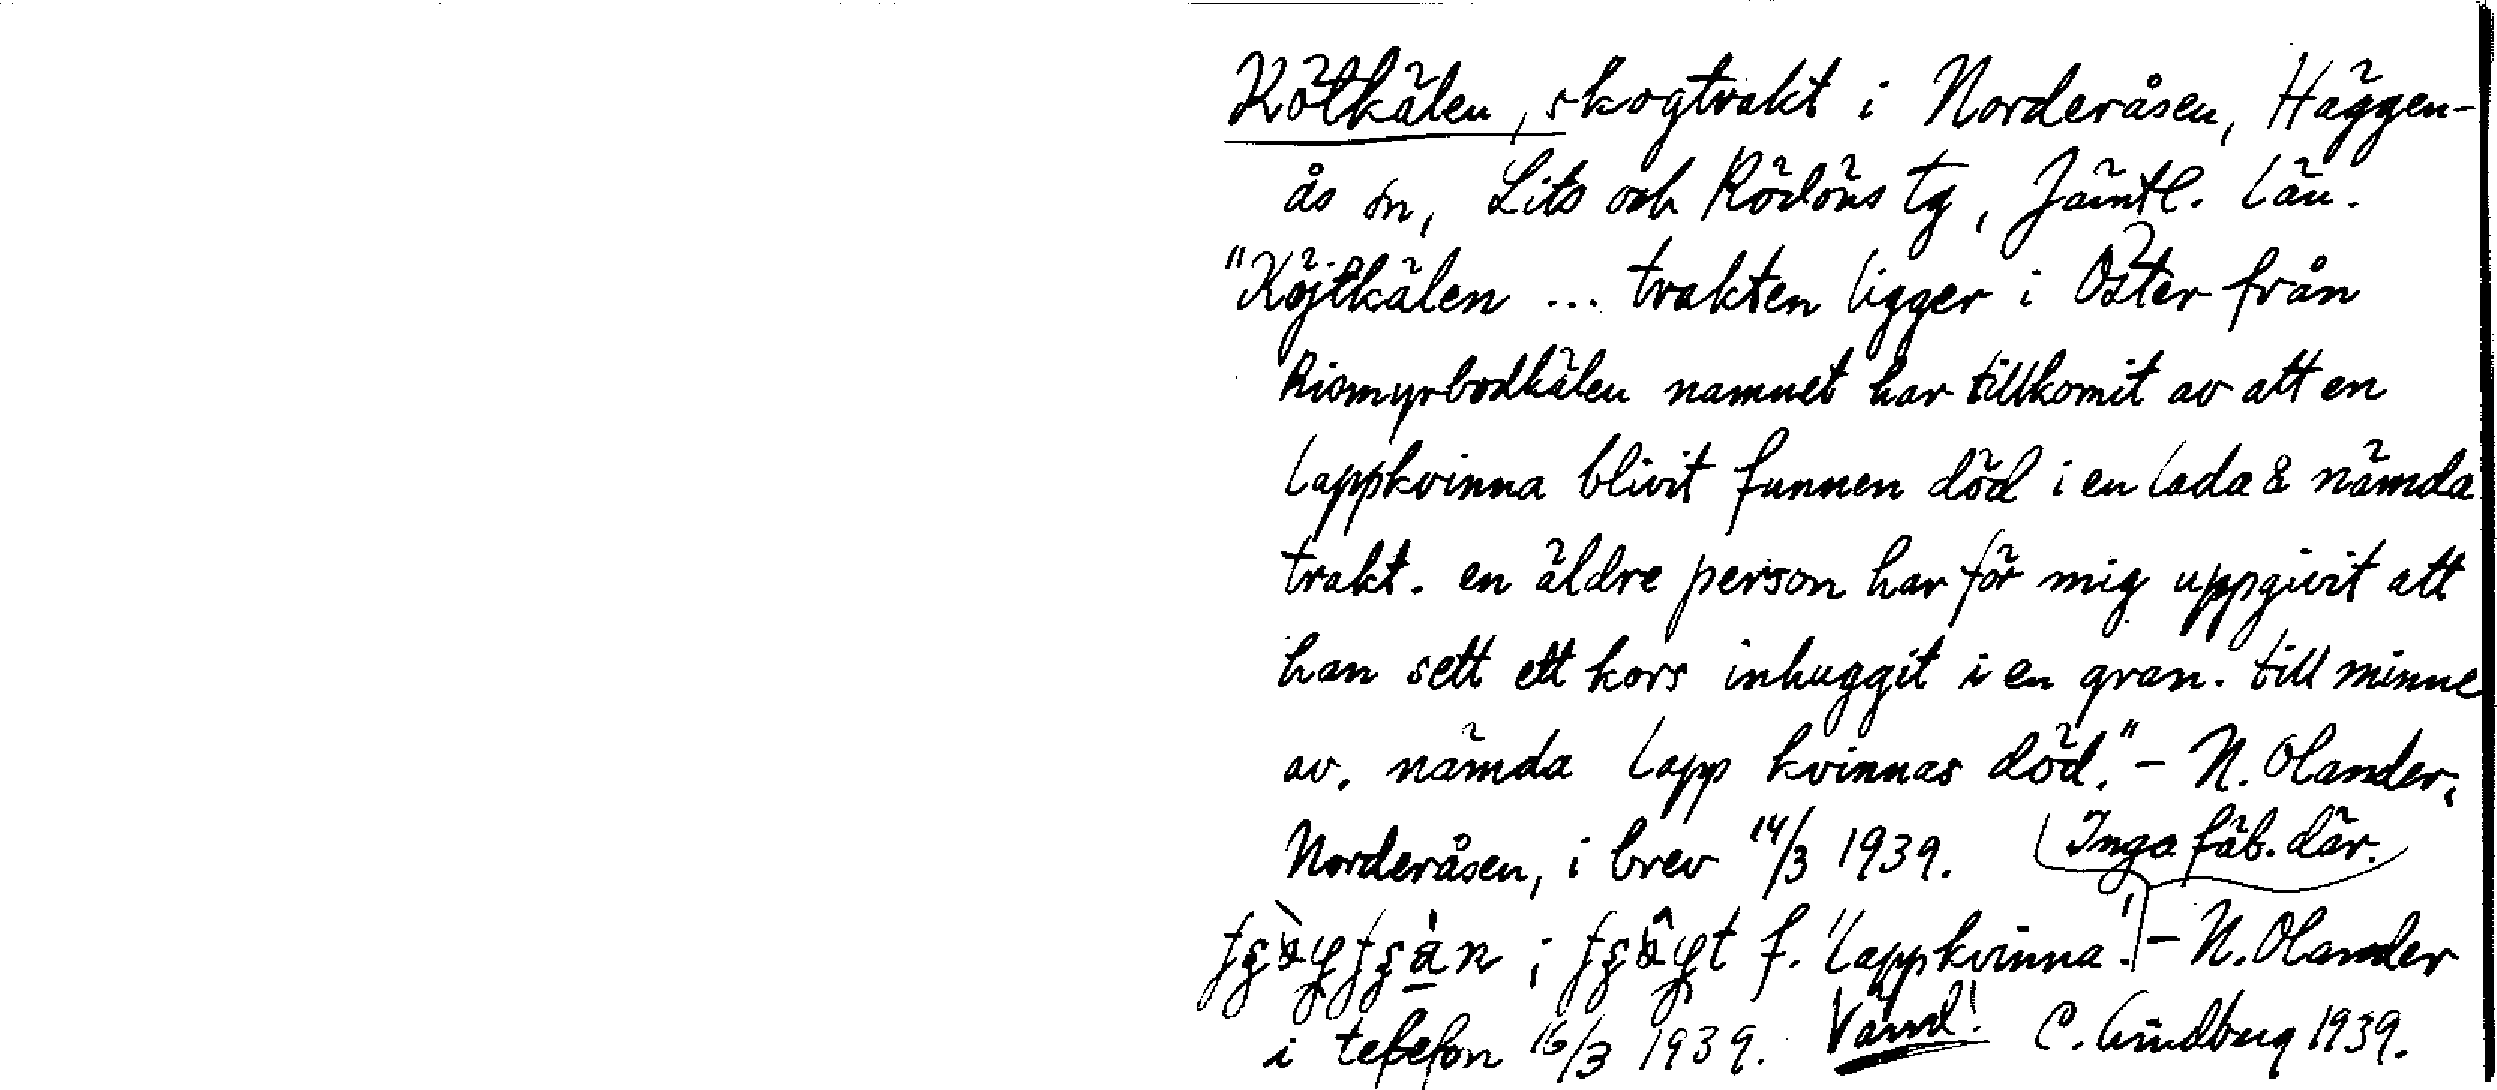 Kötkälen, skogtrakt i Norderåsen, Häggen-
ås sn, Lits och Rödöns tg, Jämtl. län.
"Köjtkälen ... trakten ligger i Öster från
Rismyrbodkälen namnet har tillkomit av att en
Lappkvinna blivit funnen död i en lada å nämda
trakt. en äldre person har för mig uppgivit att
han sett ett kors inhuggit i en gran. till minne
av. nämda Lapp kvinnas död." – N. Olander,
Norderåsen, i brev 14/3 1939. Inga fäb. där.
f. 'Lappkvinna'. – N. Olander
i telefon 16/3 1939. Vänd! C. Lindberg 1939.